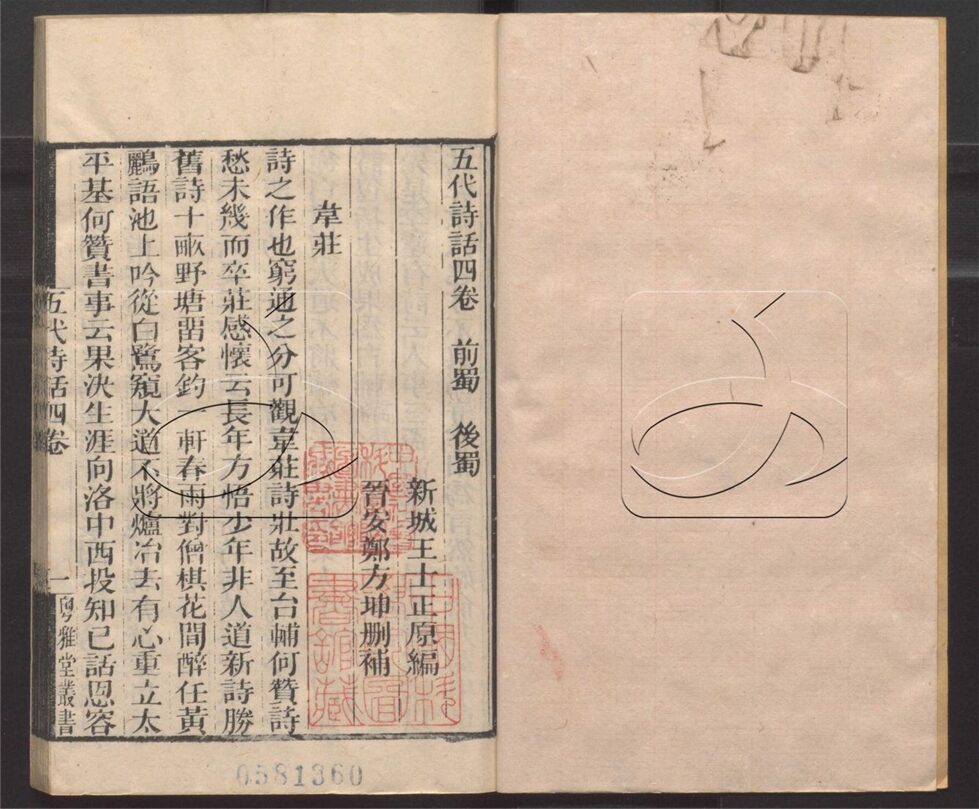 五代詩話四卷　前蜀　後蜀
新城王士正原編
晉安鄭方坤刪補
韋莊
詩之作也窮通之分可觀韋莊詩壯故至台輔何贊詩
愁未幾而卒莊感懷云長年方悟少年非人道新詩勝
舊詩十畝野塘畱客釣一軒春雨對僧棋花間醉任黃
鸝語池上吟從白鷺窺大道不將爐冶去有心重立太
平基何贊書事云果決生涯向洛中西投知已話恩容
五代詩話四卷
一
粵雅堂叢書
0581360